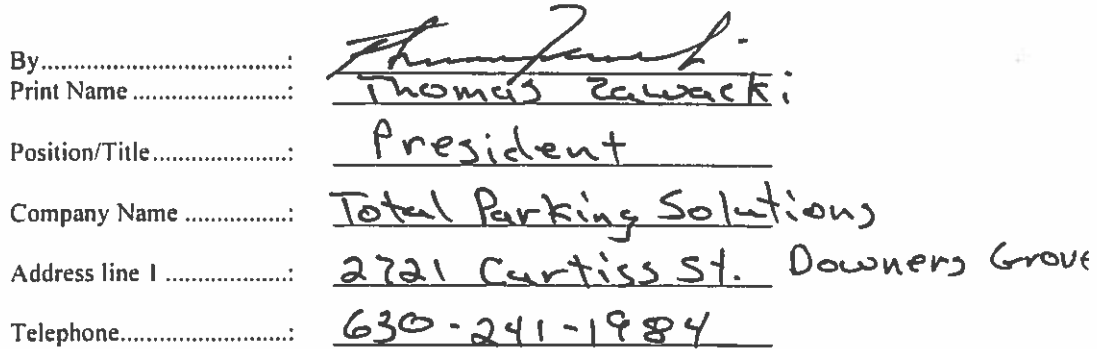 By..................................:
Print Name ......................:
Thomas Zawacki
Position/Title.....................: President
Company Name ...............: Total Parking Solutions
Address line 1 ..................: 2721 Curtiss St. Downers Grove
Telephone.........................: 630-241-1984